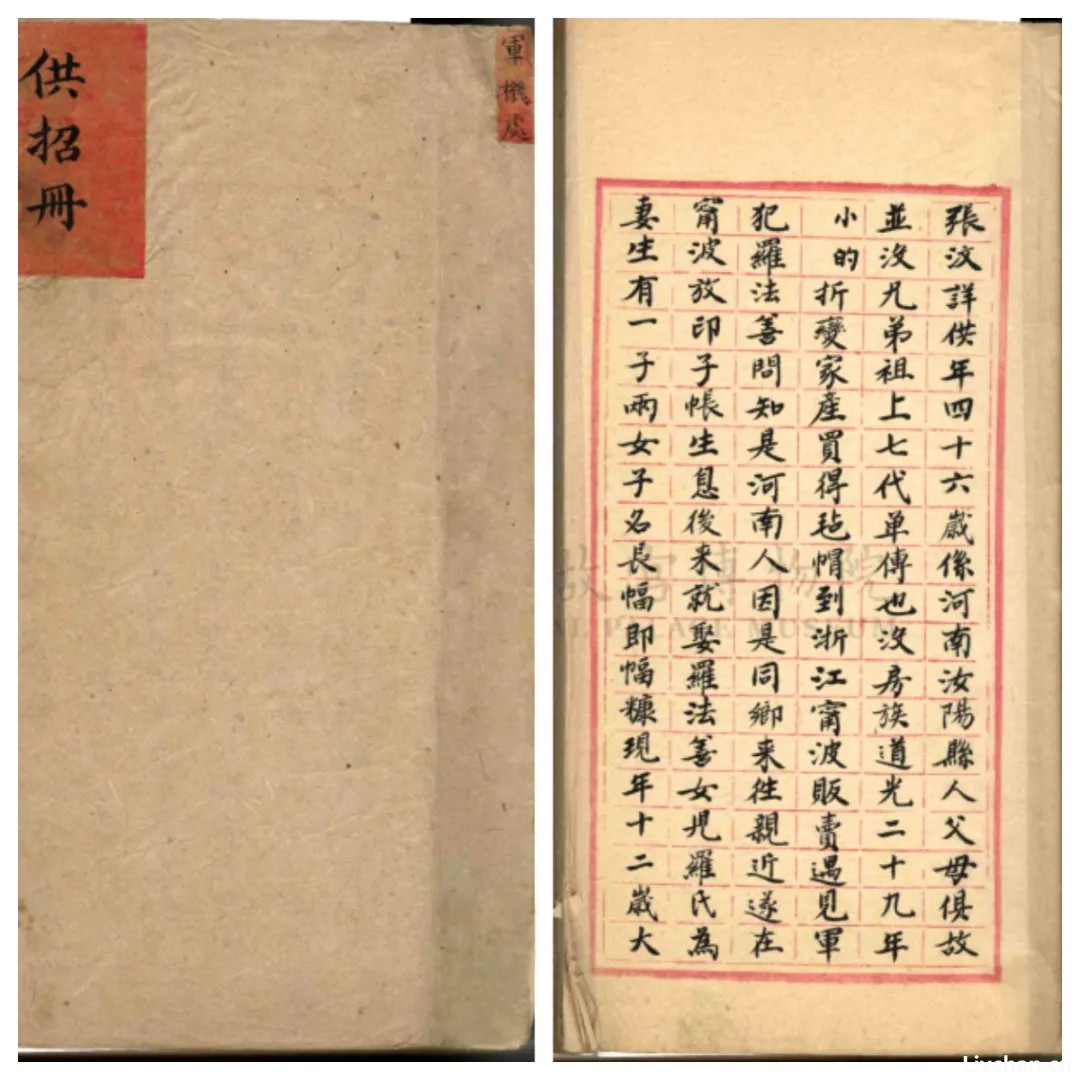 供招冊
軍機處
張汶詳供年四十六歲係河南汝陽縣人父母俱故
並沒兄弟祖上七代单傳也沒房族道光二十九年
小的折變家產買得毡帽到浙江甯波販賣遇見軍
犯羅法善問知是河南人因是同鄉来徃親近遂在
甯波放印子帳生息後来就娶羅法善女児羅氏為
妻生有一子兩女子名長幅即幅糠現年十二歲大
故宮博物院
AL PALACE MUSEUM
Livchan.cn